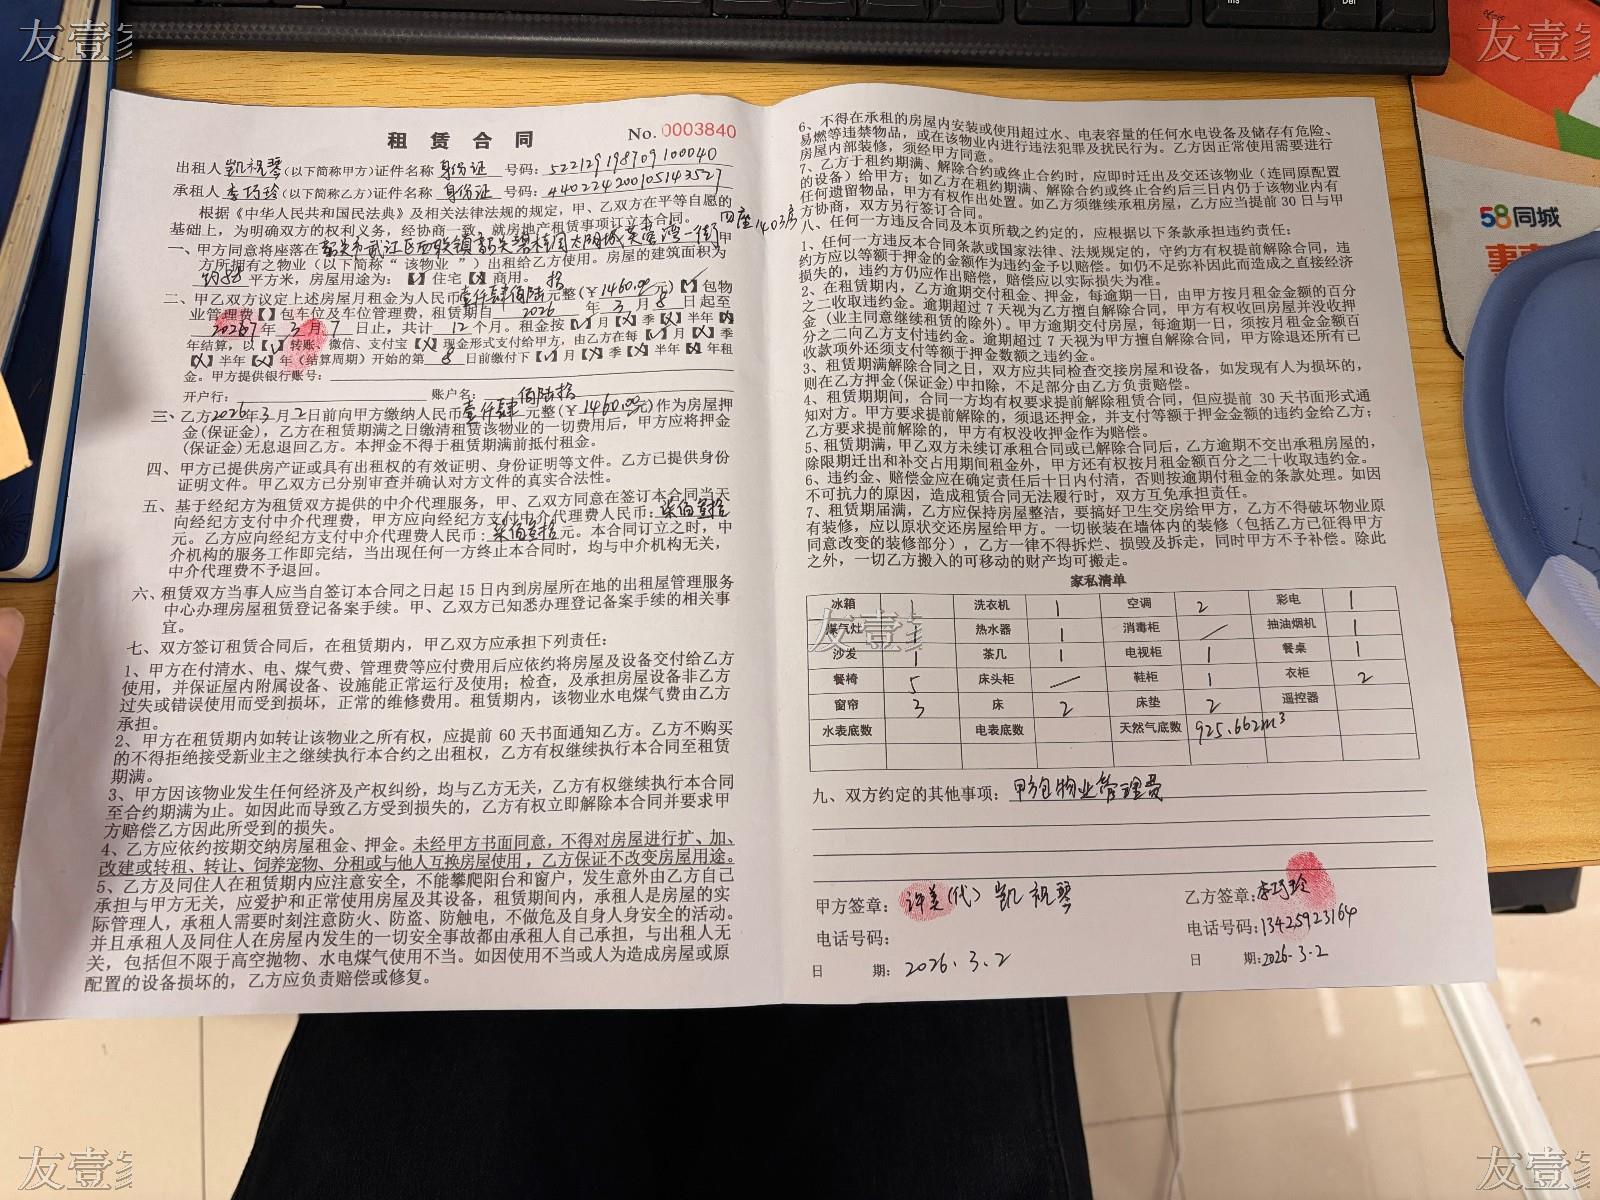 友壹家
友壹家
58同城
租 赁 合 同 No. 0003840
出租人凯祝琴(以下简称甲方)证件名称 身份证 号码: 522129198709100040
承租人李巧玲(以下简称乙方)证件名称 身份证 号码: 440224200105143527
根据《中华人民共和国民法典》及相关法律法规的规定，甲、乙双方在平等自愿的
基础上，为明确双方的权利义务，经协商一致，就房地产租赁事项订立本合同。
一、甲方同意将座落在韶关市武江区西联镇韶关碧桂园太阳城芙蓉湾一街四座1403房 甲
方所拥有之物业(以下简称“该物业”)出租给乙方使用。房屋的建筑面积为
约88平方米，房屋用途为：【✓】住宅【X】商用。
二、甲乙双方议定上述房屋月租金为人民币壹仟肆佰陆拾元整(￥1460.00元)【✓】包物
业管理费【】包车位及车位管理费，租赁期自 2026 年 3 月 8 日起至
2027 年 3 月 7 日止，共计 12 个月。租金按【✓】月【X】季【X】半年【X】
年结算，以【✓】转账、微信、支付宝【X】现金形式支付给甲方，由乙方在每【✓】月【X】季
【X】半年【X】年(结算周期)开始的第 8 日前缴付下【✓】月【X】季【X】半年【X】年租
金。甲方提供银行账号：
开户行： 账户名：
三、乙方2026年3月2日前向甲方缴纳人民币壹仟肆佰陆拾元整(￥1460.00元)作为房屋押
金(保证金)，乙方在租赁期满之日缴清租赁该物业的一切费用后，甲方应将押金
(保证金)无息退回乙方。本押金不得于租赁期满前抵付租金。
四、甲方已提供房产证或具有出租权的有效证明、身份证明等文件。乙方已提供身份
证明文件。甲乙双方已分别审查并确认对方文件的真实合法性。
五、基于经纪方为租赁双方提供的中介代理服务，甲、乙双方同意在签订本合同当天
向经纪方支付中介代理费，甲方应向经纪方支付中介代理费人民币：柒佰叁拾
元。乙方应向经纪方支付中介代理费人民币：柒佰叁拾元。本合同订立之时，中
介机构的服务工作即完结，当出现任何一方终止本合同时，均与中介机构无关，
中介代理费不予退回。
六、租赁双方当事人应当自签订本合同之日起 15 日内到房屋所在地的出租屋管理服务
中心办理房屋租赁登记备案手续。甲、乙双方已知悉办理登记备案手续的相关事
宜。
七、双方签订租赁合同后，在租赁期内，甲乙双方应承担下列责任：
1、甲方在付清水、电、煤气费、管理费等应付费用后应依约将房屋及设备交付给乙方
使用，并保证屋内附属设备、设施能正常运行及使用；检查，及承担房屋设备非乙方
过失或错误使用而受到损坏，正常的维修费用。租赁期内，该物业水电煤气费由乙方
承担。
2、甲方在租赁期内如转让该物业之所有权，应提前 60 天书面通知乙方。乙方不购买
的不得拒绝接受新业主之继续执行本合约之出租权，乙方有权继续执行本合同至租赁
期满。
3、甲方因该物业发生任何经济及产权纠纷，均与乙方无关，乙方有权继续执行本合同
至合约期满为止。如因此而导致乙方受到损失的，乙方有权立即解除本合同并要求甲
方赔偿乙方因此所受到的损失。
4、乙方应依约按期交纳房屋租金、押金。未经甲方书面同意，不得对房屋进行扩、加、
改建或转租、转让、饲养宠物、分租或与他人互换房屋使用，乙方保证不改变房屋用途。
5、乙方及同住人在租赁期内应注意安全，不能攀爬阳台和窗户，发生意外由乙方自己
承担与甲方无关，应爱护和正常使用房屋及其设备，租赁期间内，承租人是房屋的实
际管理人，承租人需要时刻注意防火、防盗、防触电，不做危及自身人身安全的活动。
并且承租人及同住人在房屋内发生的一切安全事故都由承租人自己承担，与出租人无
关，包括但不限于高空抛物、水电煤气使用不当。如因使用不当或人为造成房屋或原
配置的设备损坏的，乙方应负责赔偿或修复。
6、不得在承租的房屋内安装或使用超过水、电表容量的任何水电设备及储存有危险、
易燃等违禁物品，或在该物业内进行违法犯罪及扰民行为。乙方因正常使用需要进行
房屋内部装修，须经甲方同意。
7、乙方于租约期满、解除合约或终止合约时，应即时迁出及交还该物业（连同原配置
的设备）给甲方；如乙方在租约期满、解除合约或终止合约后三日内仍于该物业内有
任何遗留物品，甲方有权作出处置。如乙方须继续承租房屋，乙方应当提前 30 日与甲
方协商，双方另行签订合同。
八、任何一方违反合同及本页所载之约定的，应根据以下条款承担违约责任：
1、任何一方违反本合同条款或国家法律、法规规定的，守约方有权提前解除合同，违
约方应以等额于押金的金额作为违约金予以赔偿。如仍不足弥补因此而造成之直接经济
损失的，违约方仍应作出赔偿，赔偿应以实际损失为准。
2、在租赁期内，乙方逾期交付租金、押金，每逾期一日，由甲方按月租金金额的百分
之二收取违约金。逾期超过 7 天视为乙方擅自解除合同，甲方有权收回房屋并没收押
金（业主同意继续租赁的除外）。甲方逾期交付房屋，每逾期一日，须按月租金金额百
分之二向乙方支付违约金。逾期超过 7 天视为甲方擅自解除合同，甲方除退还所有已
收款项外还须支付等额于押金数额之违约金。
3、租赁期满解除合同之日，双方应共同检查交接房屋和设备，如发现有人为损坏的，
则在乙方押金(保证金)中扣除，不足部分由乙方负责赔偿。
4、租赁期期间，合同一方均有权要求提前解除租赁合同，但应提前 30 天书面形式通
知对方。甲方要求提前解除的，须退还押金，并支付等额于押金金额的违约金给乙方；
乙方要求提前解除的，甲方有权没收押金作为赔偿。
5、租赁期满，甲乙双方未续订承租合同或已解除合同后，乙方逾期不交出承租房屋的，
除限期迁出和补交占用期间租金外，甲方还有权按月租金额百分之二十收取违约金。
6、违约金、赔偿金应在确定责任后十日内付清，否则按逾期付租金的条款处理。如因
不可抗力的原因，造成租赁合同无法履行时，双方互免承担责任。
7、租赁期届满，乙方应保持房屋整洁，要搞好卫生交房给甲方，乙方不得破坏物业原
有装修，应以原状交还房屋给甲方。一切嵌装在墙体内的装修（包括乙方已征得甲方
同意改变的装修部分），乙方一律不得拆烂、损毁及拆走，同时甲方不予补偿。除此
之外，一切乙方搬入的可移动的财产均可搬走。
家私清单
冰箱 1 洗衣机 1 空调 2 彩电 1
煤气灶 1 热水器 1 消毒柜 / 抽油烟机 1
沙发 1 茶几 1 电视柜 1 餐桌 1
餐椅 5 床头柜 / 鞋柜 1 衣柜 2
窗帘 3 床 2 床垫 2 遥控器
水表底数 电表底数 天然气底数 925.662m³
友壹家
九、双方约定的其他事项：甲方包物业管理费
甲方签章：许美(代) 凯祝琴 乙方签章:李巧玲
电话号码： 电话号码:13425923164
日 期: 2026.3.2 日 期:2026.3.2
友壹家
友壹家